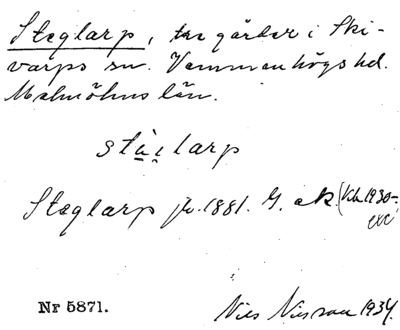 Steglarp, tre gårdar i Ski-
varps sn. Vemmenhögs hd.
Malmöhus län.
stɑ̀i̯larp
Steglarp Jb. 1881. G. ek. (Kch. 1930-;
exc
Nr 5871.
Nils Nilsson 1934.